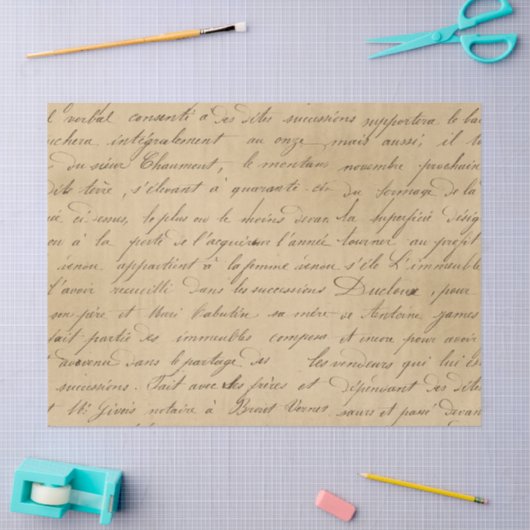 l verbal consenti à des dites successions supportera le bai
uchera intégralement au onze mais aussi; il
du sieur Chaumont, le montans novembre prochain
dite terre, s'élevant à quarante du fermage de la
ci-émis, le plus ou le moins devan la superficie désig
ou à la porté de l'acquereur l'année tourner au profit
venou appartient à la femme venou s'ele L'immeuble
l'avoir recueilli dans les successions Ducloux, pour
son père et Mari Cabutin sa mère de Antoine james
fait partie des immeubles composa et encore pour avoir
avvenu dans le partage des les vendeurs qui lui
successions. Fait avec les frères et dépendant des dites
Mr Givois notaire à Brout Vernet sœurs et passé devan